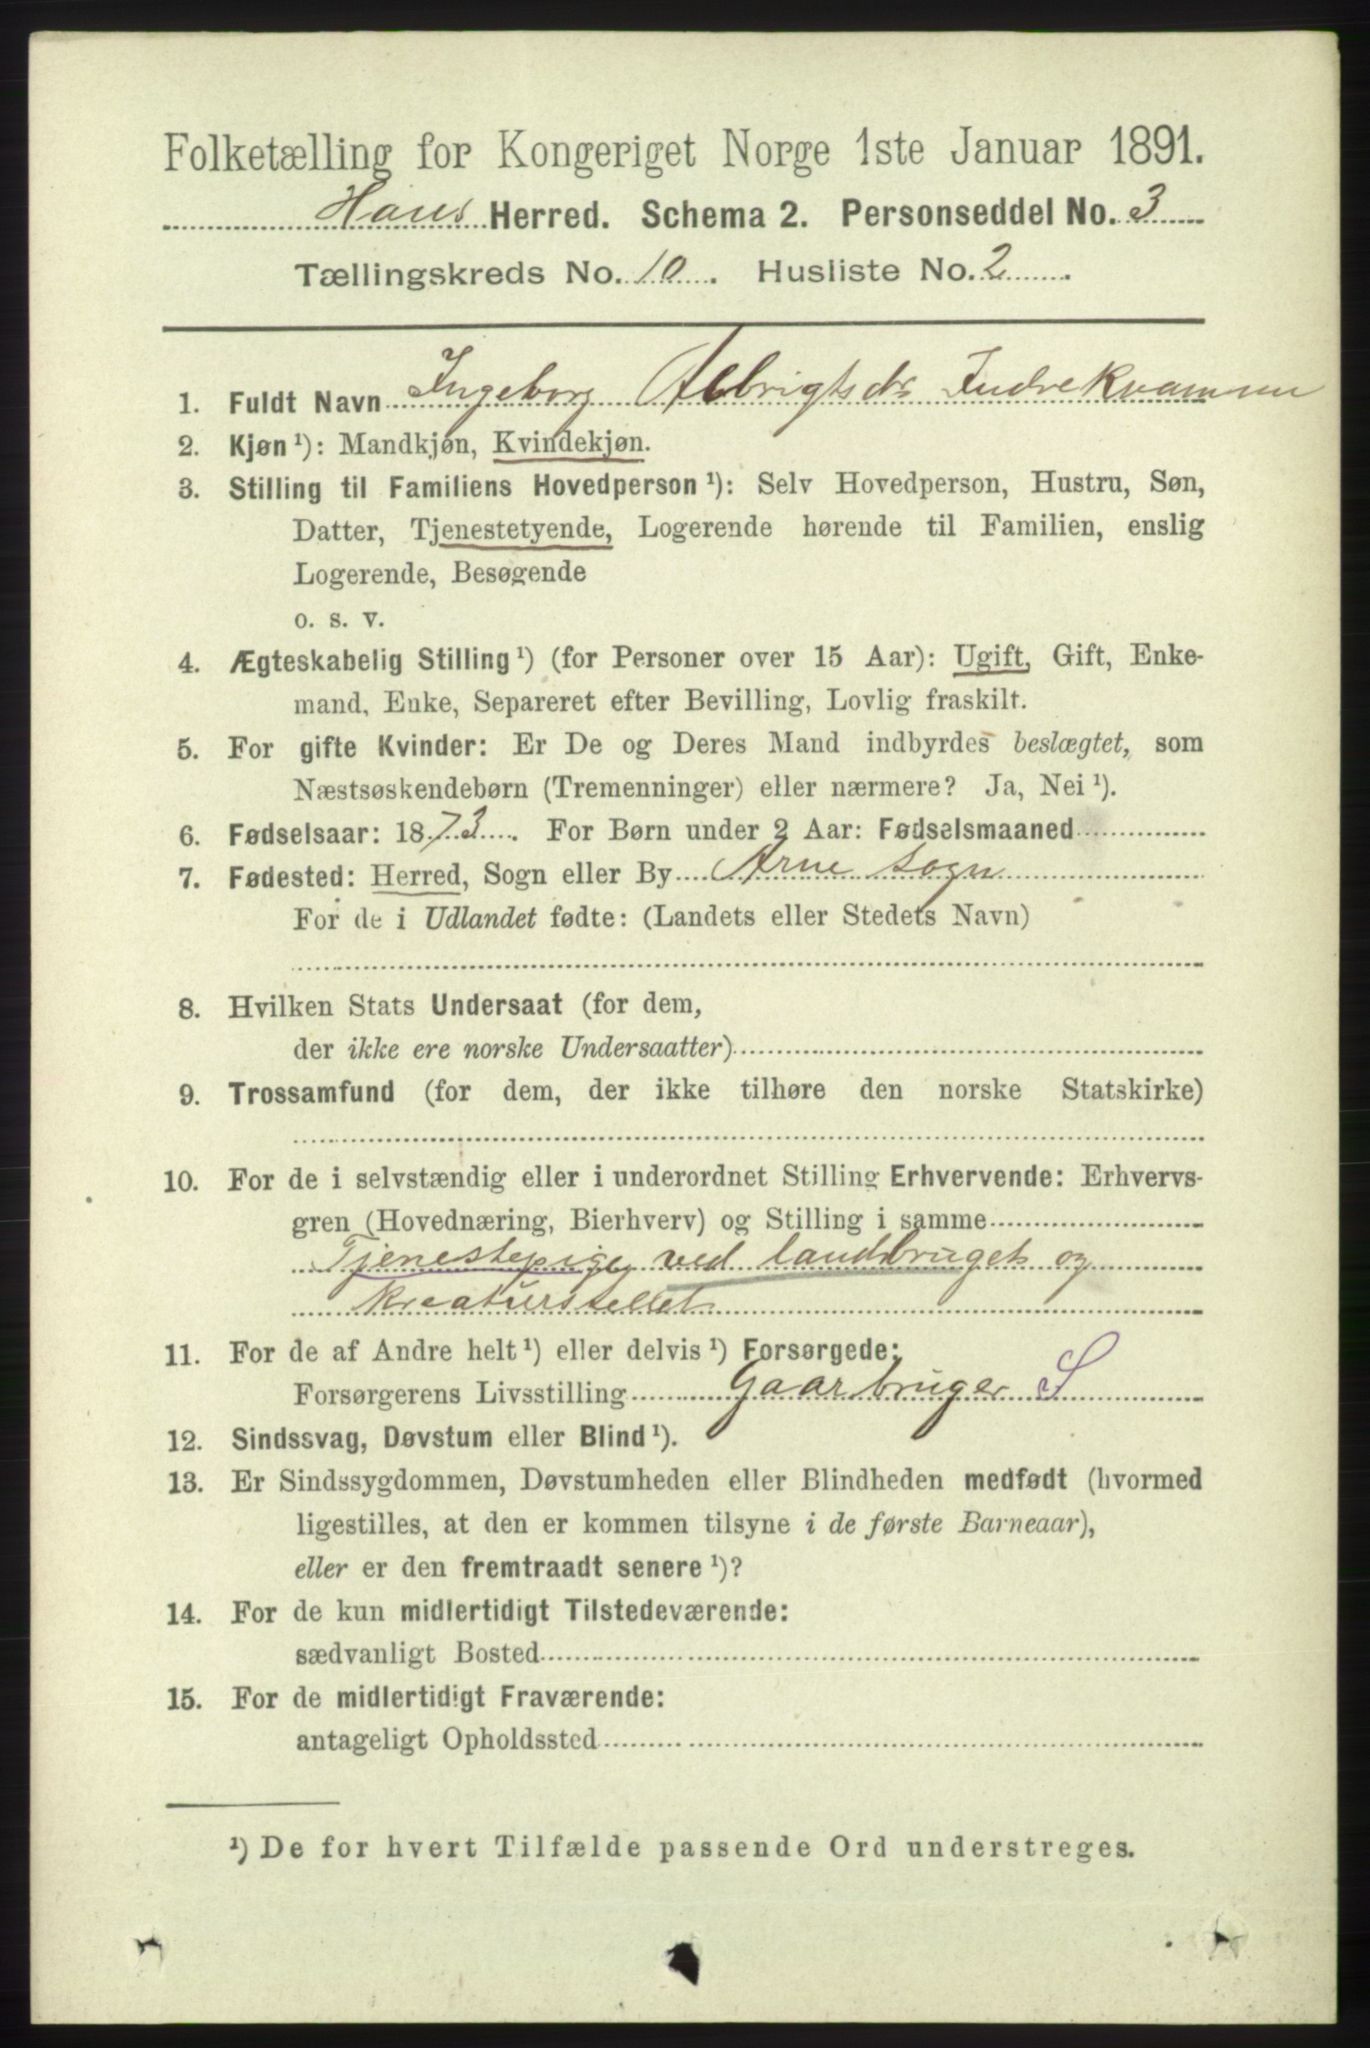 Folketælling for Kongeriget Norge 1ste Januar 1891.
Haus Herred. Schema 2. Personseddel No. 3
Tællingskreds No. 10. Husliste No. 2.
1. Fuldt Navn Ingeborg Albrigtsdr Indrekvammen
2. Kjøn ¹): Mandkjøn, Kvindekjøn.
3. Stilling til Familiens Hovedperson ¹): Selv Hovedperson, Hustru, Søn,
Datter, Tjenestetyende, Logerende hørende til Familien, enslig
Logerende, Besøgende
o. s. v.
4. Ægteskabelig Stilling ¹) (for Personer over 15 Aar): Ugift, Gift, Enke-
mand, Enke, Separeret efter Bevilling, Lovlig fraskilt.
5. For gifte Kvinder: Er De og Deres Mand indbyrdes beslægtet, som
Næstsøskendebørn (Tremenninger) eller nærmere? Ja, Nei ¹).
6. Fødselsaar: 1873. For Børn under 2 Aar: Fødselsmaaned
7. Fødested: Herred, Sogn eller By Arne sogn
For de i Udlandet fødte: (Landets eller Stedets Navn)
8. Hvilken Stats Undersaat (for dem,
der ikke ere norske Undersaatter)
9. Trossamfund (for dem, der ikke tilhøre den norske Statskirke)
10. For de i selvstændig eller i underordnet Stilling Erhvervende: Erhvervs-
gren (Hovednæring, Bierhverv) og Stilling i samme
Tjenestepige ved landbruget og
kreaturstellet
11. For de af Andre helt ¹) eller delvis ¹) Forsørgede:
Forsørgerens Livsstilling Gaarbruger S
12. Sindssvag, Døvstum eller Blind ¹).
13. Er Sindssygdommen, Døvstumheden eller Blindheden medfødt (hvormed
ligestilles, at den er kommen tilsyne i de første Barneaar),
eller er den fremtraadt senere ¹)?
14. For de kun midlertidigt Tilstedeværende:
sædvanligt Bosted
15. For de midlertidigt Fraværende:
antageligt Opholdssted
¹) De for hvert Tilfælde passende Ord understreges.